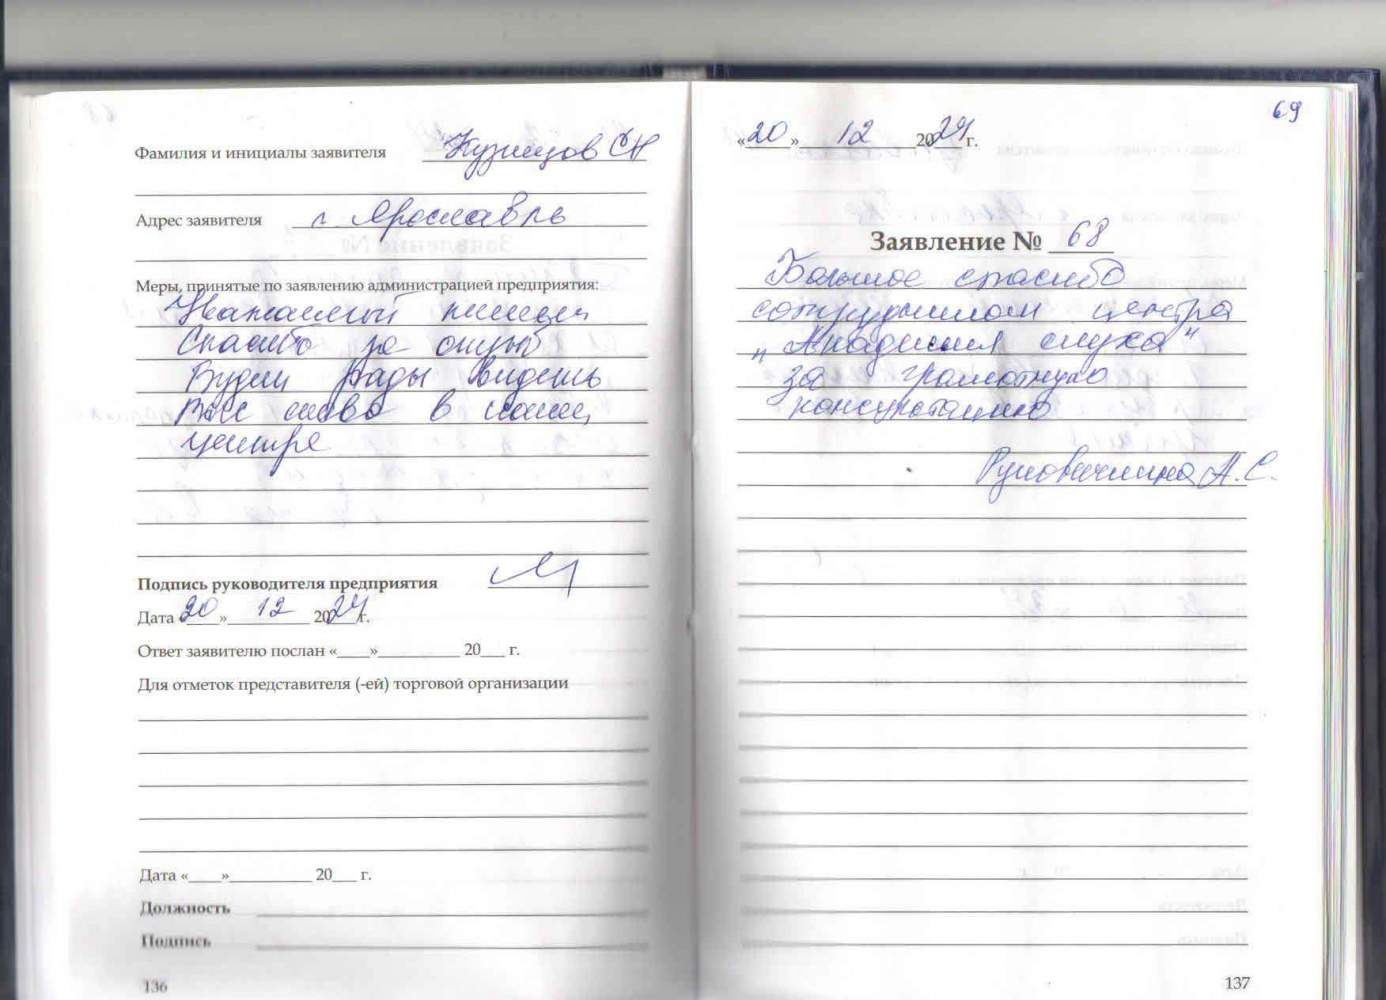 Фамилия и инициалы заявителя Кузнецов СН
Адрес заявителя г Ярославль
Меры, принятые по заявлению администрацией предприятия:
Уважаемый пациент
Спасибо за отзыв
Будем рады видеть
Вас снова в нашем
центре
Подпись руководителя предприятия
Дата «20» 12 2024г.
Ответ заявителю послан «____»__________ 20___ г.
Для отметок представителя (-ей) торговой организации
Дата «____»__________ 20___ г.
Должность
Подпись
136
69
«20» 12 2024г.
Заявление № 68
Большое спасибо
сотрудникам центра
"Академия слуха"
за грамотную
консультацию
А.С.
137